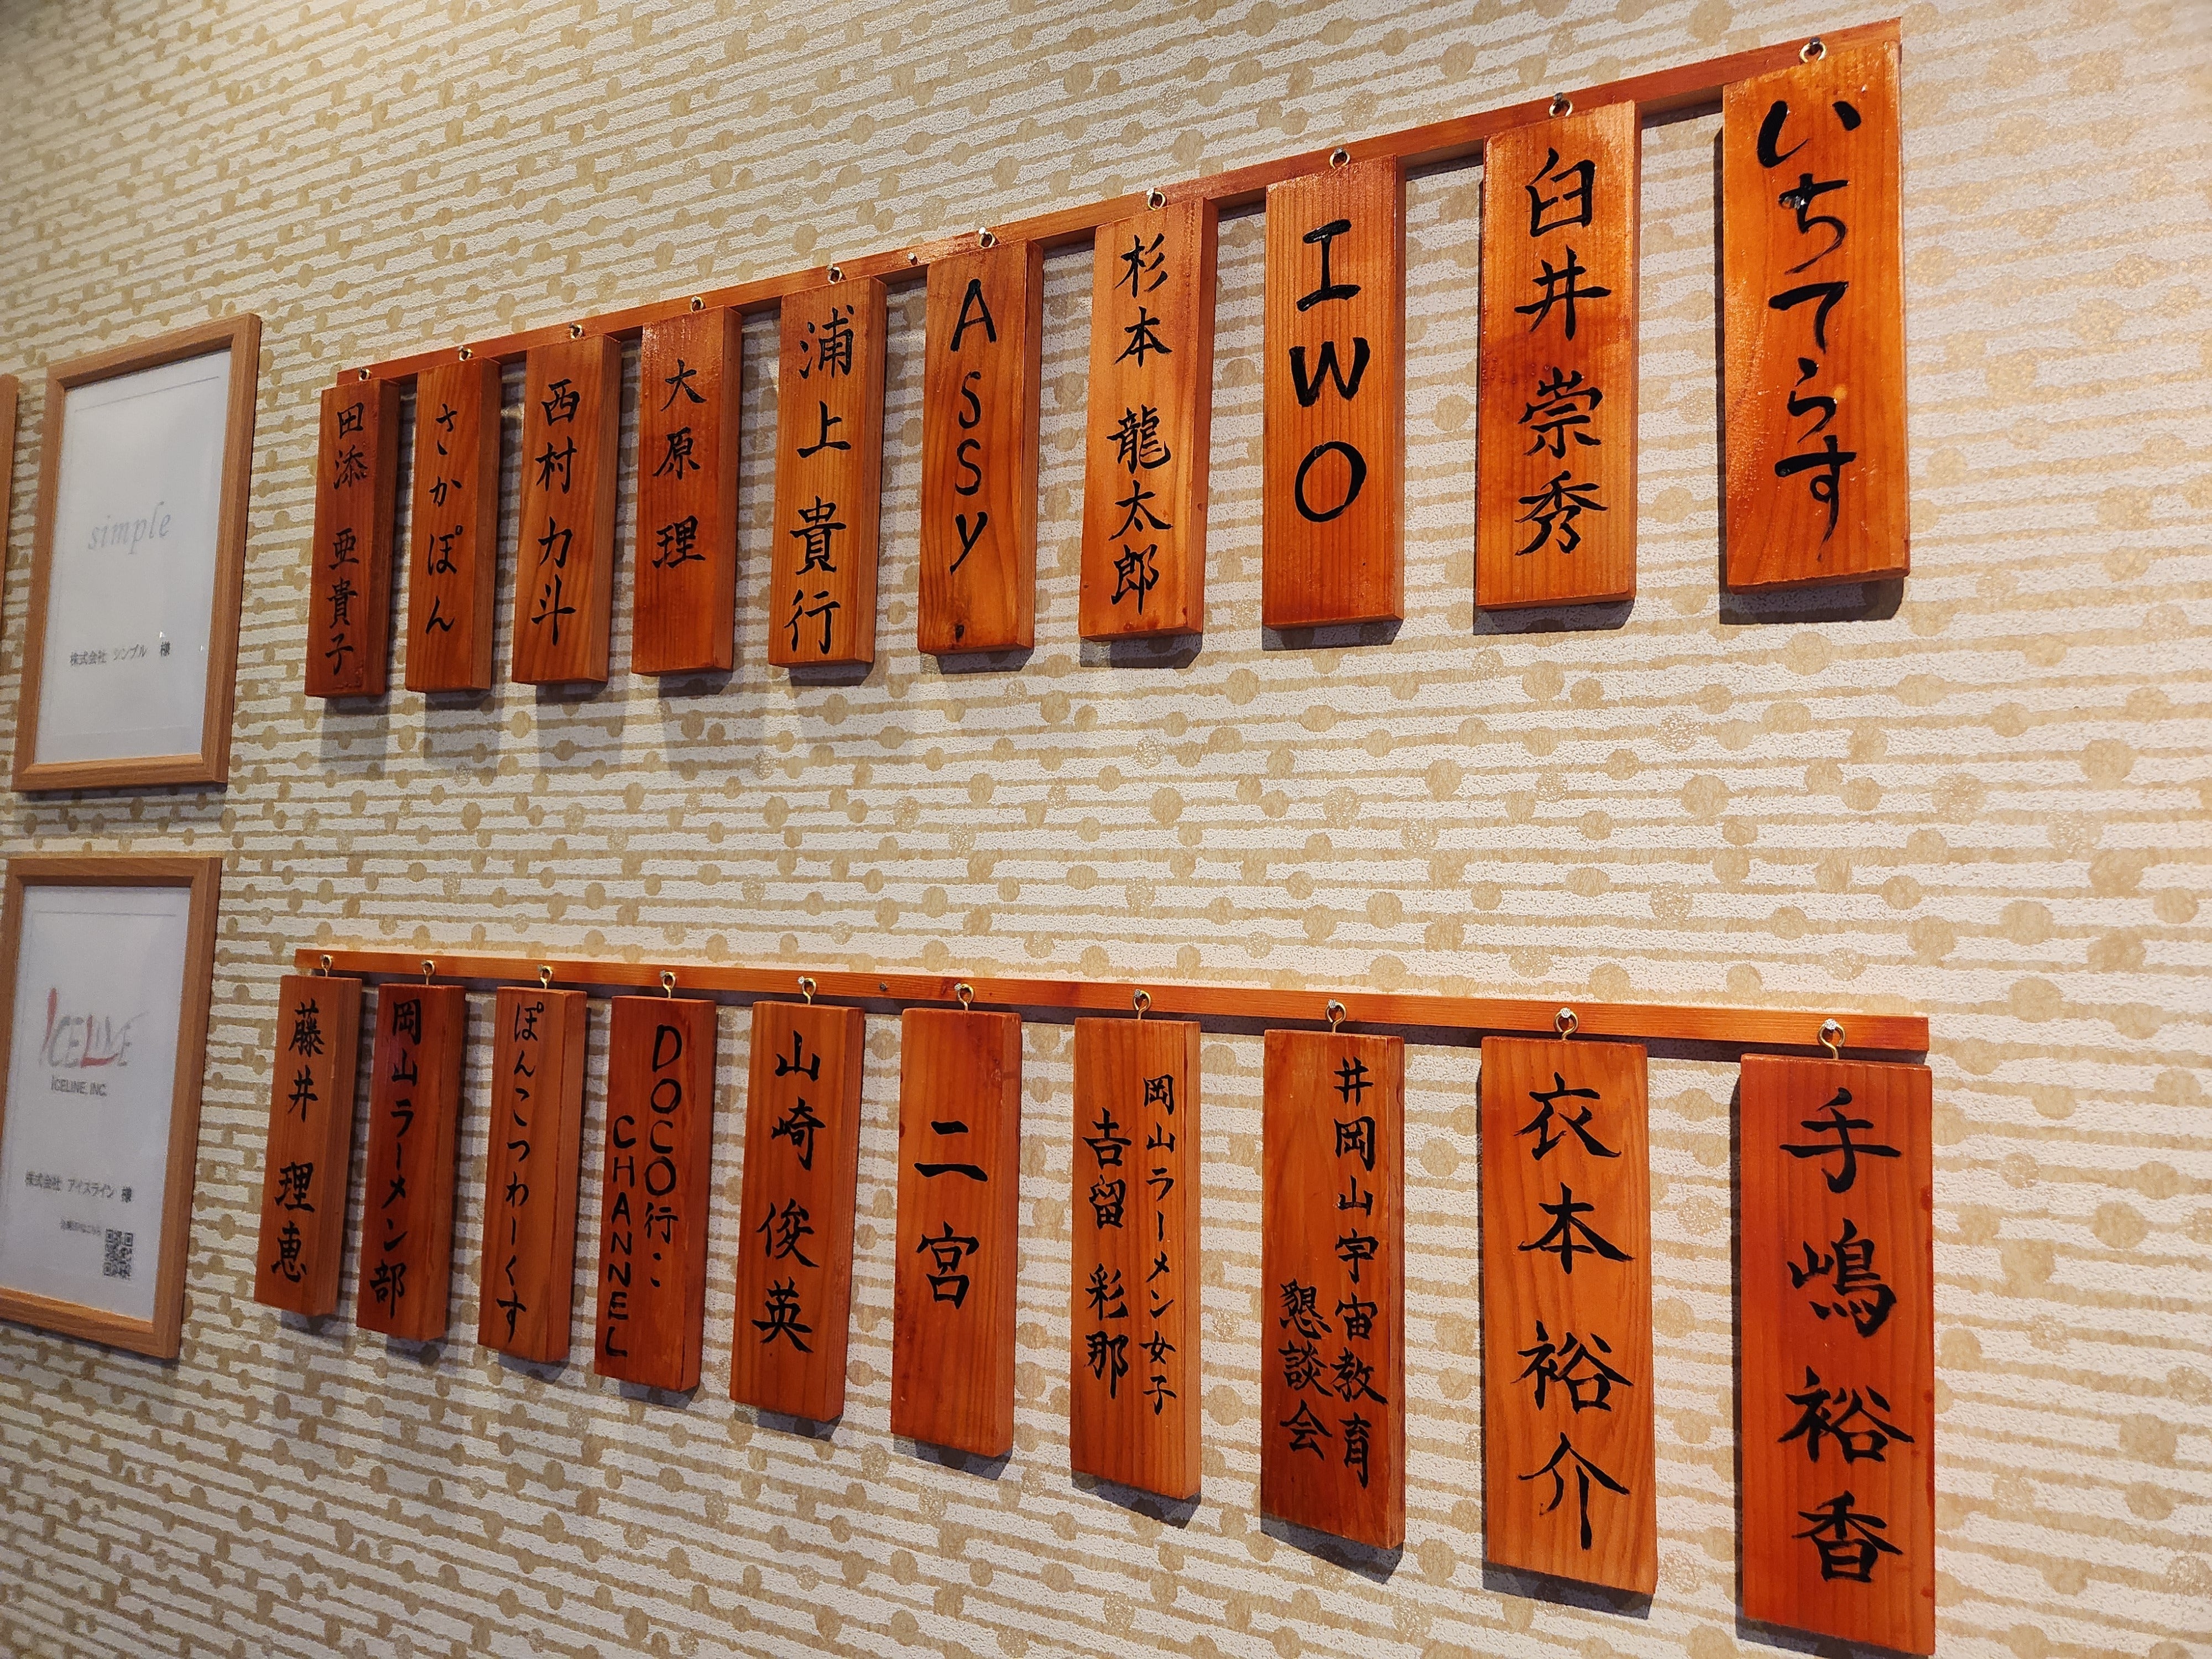 いちてらす
臼井崇秀
IWO
杉本 龍太郎
Assy.
浦上 貴行
大原 理
西村 力斗
さかぽん
田添 亜貴子
手嶋裕香
衣本裕介
井岡山宇宙教育
懇談会
岡山ラーメン女子
吉留 彩那
二宮
山崎 俊英
DOCO行こ
CHANNEL
ぽんこつわーくす
岡山ラーメン部
藤井 理恵
simple
株式会社 シンプル 様
ICELINE
ICELINE, INC.
株式会社 アイスライン 様